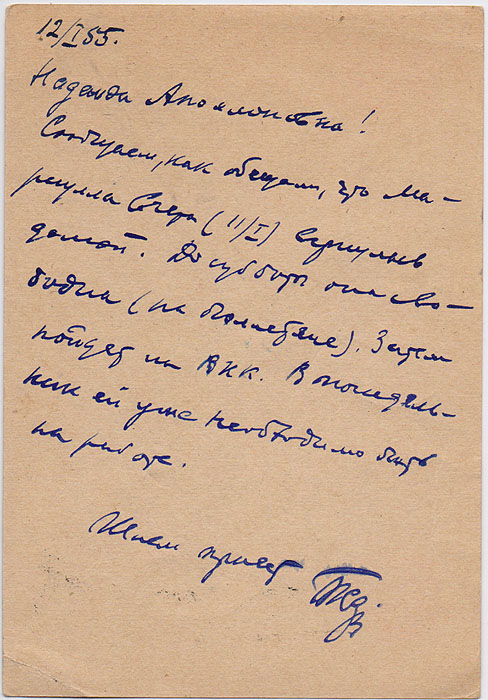 12/I 55.
Надежда Аполлоновна!
Сообщаем, как обещали, что Ма-
рсулла вчера (11/I) вернулась
домой. До субботы она сво-
бодна (на бюллетене). Затем
пойдет на ВКК. В понедель-
ник ей уже необходимо быть
на работе.
Шлем привет